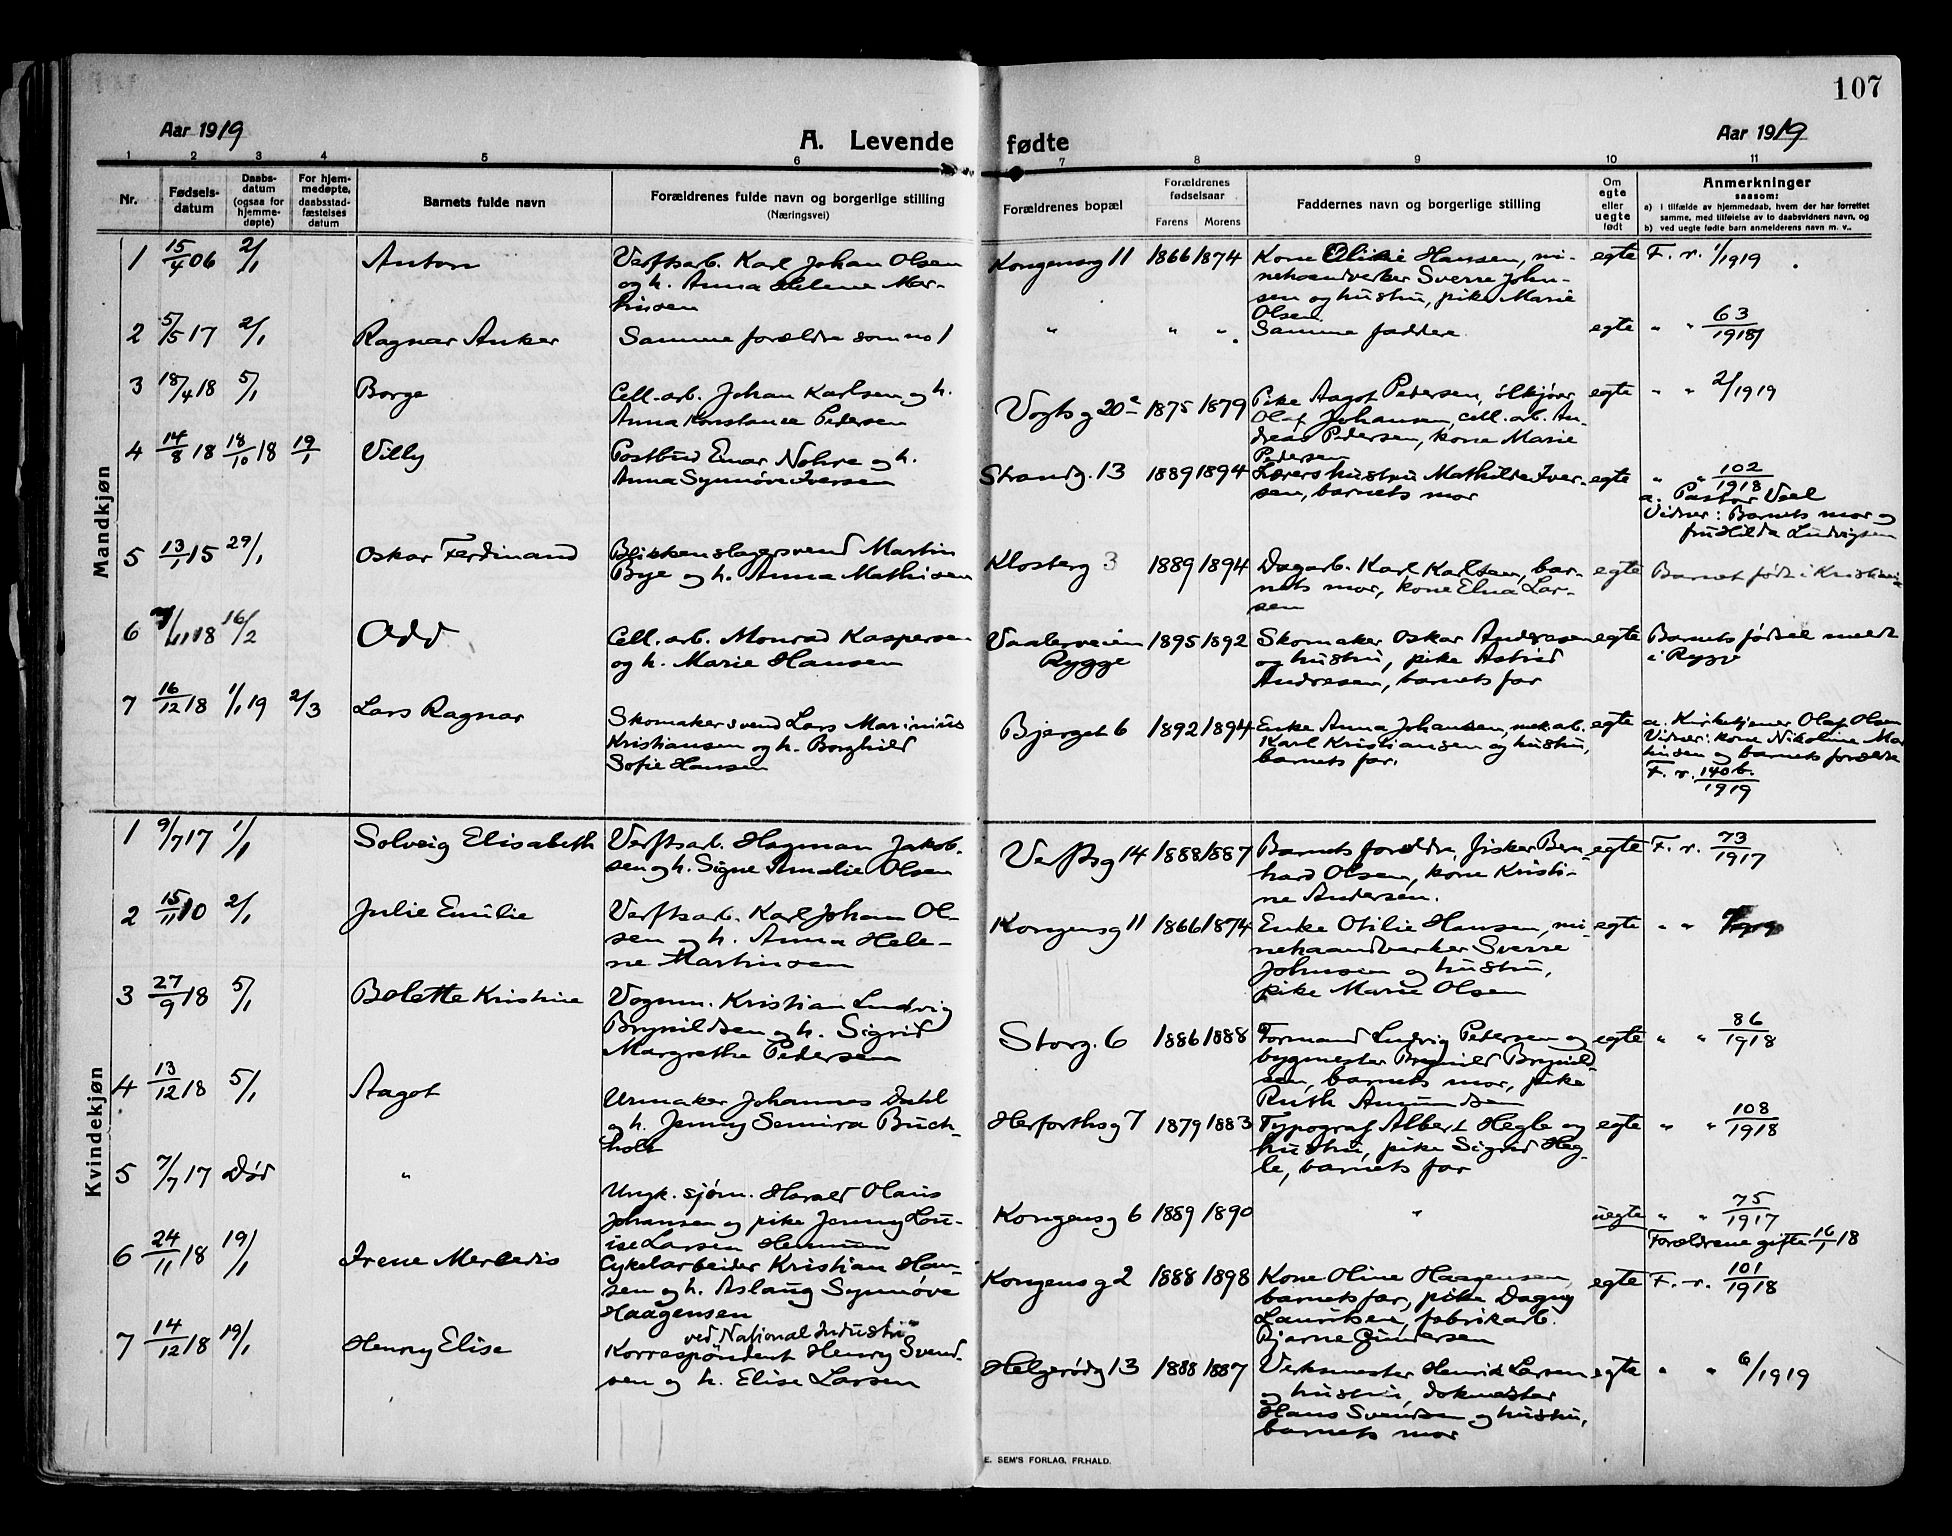 107
Aar 1919
A. Levende fødte
Aar 1919
1 2 3 4 5 6 7 8 9 10 11
Nr.
Fødsels-
datum
Daabs-
datum
(ogsaa for
hjemme-
døpte)
For hjem-
medøpte,
daabsstad-
fæstelses
datum
Barnets fulde navn
Forældrenes fulde navn og borgerlige stilling
(Næringsvei)
Forældrenes bopæl
Forældrenes
fødselsaar
Farens Morens
Faddernes navn og borgerlige stilling
Om
egte
eller
uegte
født
Anmerkninger
saasom:
a) i tilfælde av hjemmedaab, hvem der har forrettet
samme, med tilføielse av to daabsvidners navn, og
b) ved uegte fødte barn anmelderens navn m. v..
Mandkjøn
1 15/4 06 2/1 Anton
Verftsarb. Karl Johan Olsen
og h. Anna Helene Mar-
tinsen
Kongensg 11 1866 1874
Kone Otilie Hansen, mi-
nehaandverker Sverre John-
sen og hustru, pike Marie
Olsen
egte F. r. 1/1919
2 5/5 17 2/1 Ragnar Anker
Samme forældre som no 1
" " "
Samme faddere
egte " " 63/1918
3 18/4 18 5/1 Borge
Cell.-arb. Johan Karlsen og h.
Anna Konstance Pedersen
Vogtsg 20 1875 1879
Pike Aagot Pedersen, ølkjører
Olaf Johansen, cell. arb. An-
dreas Pedersen, kone Marie
Pedersen
egte " " 2/1919
4 14/8 18 18/10 18 19/1 Villy
Postbud Einar Nohre og h.
Anna Synnøve Iversen
Strandg. 13 1889 1894
Lærers hustru Mathilde Iver-
sen, barnets mor
egte " " 102/1918
a. Pastor Veel
Vidner: Barnets mor og
fru Hilda Ludvigsen
5 13/1 15 29/1 Oskar Ferdinand
Blikkenslagersvend Martin
Bye og h. Anna Mathisen
Klosterg 3 1889 1894
Dagarb. Karl Karlsen, bar-
nets mor, kone Elna Lar-
sen
egte Barnet født i Kristiania
6 /11 18 16/2 Odd
Cell. arb. Monrad Kaspersen
og h. Marie Hansen
Vaalerveien
Rygge
1895 1892
Skomaker Oskar Andresen
og hustru, pike Astrid
Andresen, barnets far
egte Barnets fødsel meldt
i Rygge
7 16/12 18 1/1 19 2/3 Lars Ragnar
Skomakersvend Lars Marinius
Kristiansen og h. Borghild
Sofie Hansen
Bjerget 6 1892 1894
Enke Anna Johansen, mek. arb.
Karl Kristiansen og hustru,
barnets far.
egte a. Kirketjener Olaf Olsen
Vidner: kone Nikoline Mar
tinsen og barnets forældre
F. r. 140 b./1919
Kvindekjøn
1 9/7 17 1/1 Solveig Elisabeth
Verftsarb. Hagman Jakob-
sen og h. Signe Amalie Olsen
Verftsg 14 1888 1887
Barnets forældre, fisker Bern-
hard Olsen, kone Kristi-
ne Andersen.
egte F. r. 73/1917
2 15/11 10 2/1 Julie Emilie
Verftsarb. Karl Johan Ol-
sen og h. Anna Hele-
ne Martinsen
Kongensg 11 1866 1874
Enke Otilie Hansen, mi-
nehaandverker Sverre
Johnsen og hustru,
pike Marie Olsen
egte " "
3 27/9 18 5/1 Bolette Kristine
Vognm. Kristian Ludvig
Brynildsen og h. Sigrid
Margrethe Pedersen
Storg. 6 1886 1888
Formand Ludvig Petersen og
bygmester Brynild Brynild-
sen, barnets mor, pike
Ruth Amundsen
egte " " 86/1918
4 13/12 18 5/1 Aagot
Urmaker Johannes Dahl
og h. Jenny Semira Buch-
holt
Herforthsg 7 1879 1883
Typograf Albert Hegle og
hustru, pike Sigrid Heg-
le, barnets far
egte " " 108/1918
5 7/7 17 Død "
Ungk. sjøm. Harald Olaus
Johansen og pike Jenny Lou-
ise Larsen Henman
Kongensg 6 1889 1890
"
uegte " " 75/1917
Forældrene gifte 16/1 18
6 24/11 18 19/1 Irene Mercedis
Cykelarbeider Kristian Han-
sen og h. Aslaug Synnøve
Haagensen
Kongensg 2 1888 1898
Kone Oline Haagensen,
barnets far, pike Dagny
Lauritsen, fabrikarb.
Bjarne Gundersen
egte F. r. 101/1918
7 14/12 18 19/1 Henny Elise
ved National Industri
Korrespondent Henry Svend-
sen og h. Elise Larsen
Helgerødg 13 1888 1887
Verksmester Henrik Larsen
og hustru, dokmester
Hans Svendsen og hustru,
barnets mor
egte " " 6/1919
E. SEM'S FORLAG, FR.HALD.